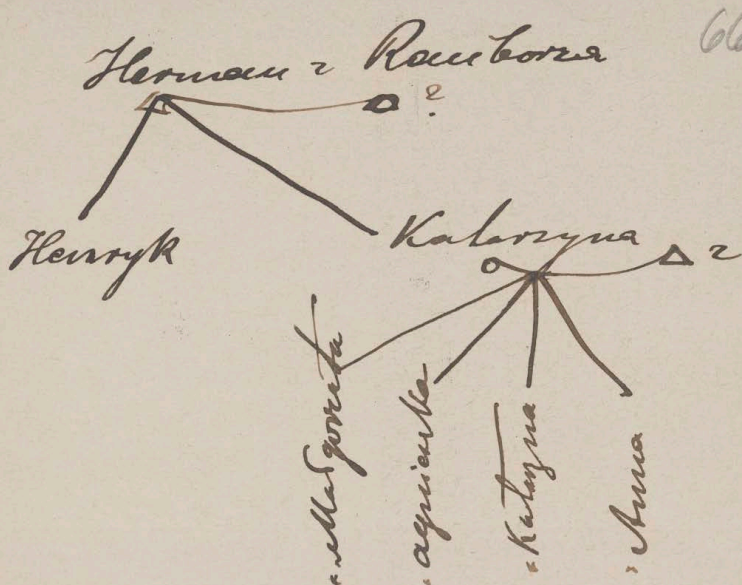 66
Herman z Ramborza
?
Henryk
Katarzyna
z
Małgorzata
Agnieszka
Katarzyna
Anna